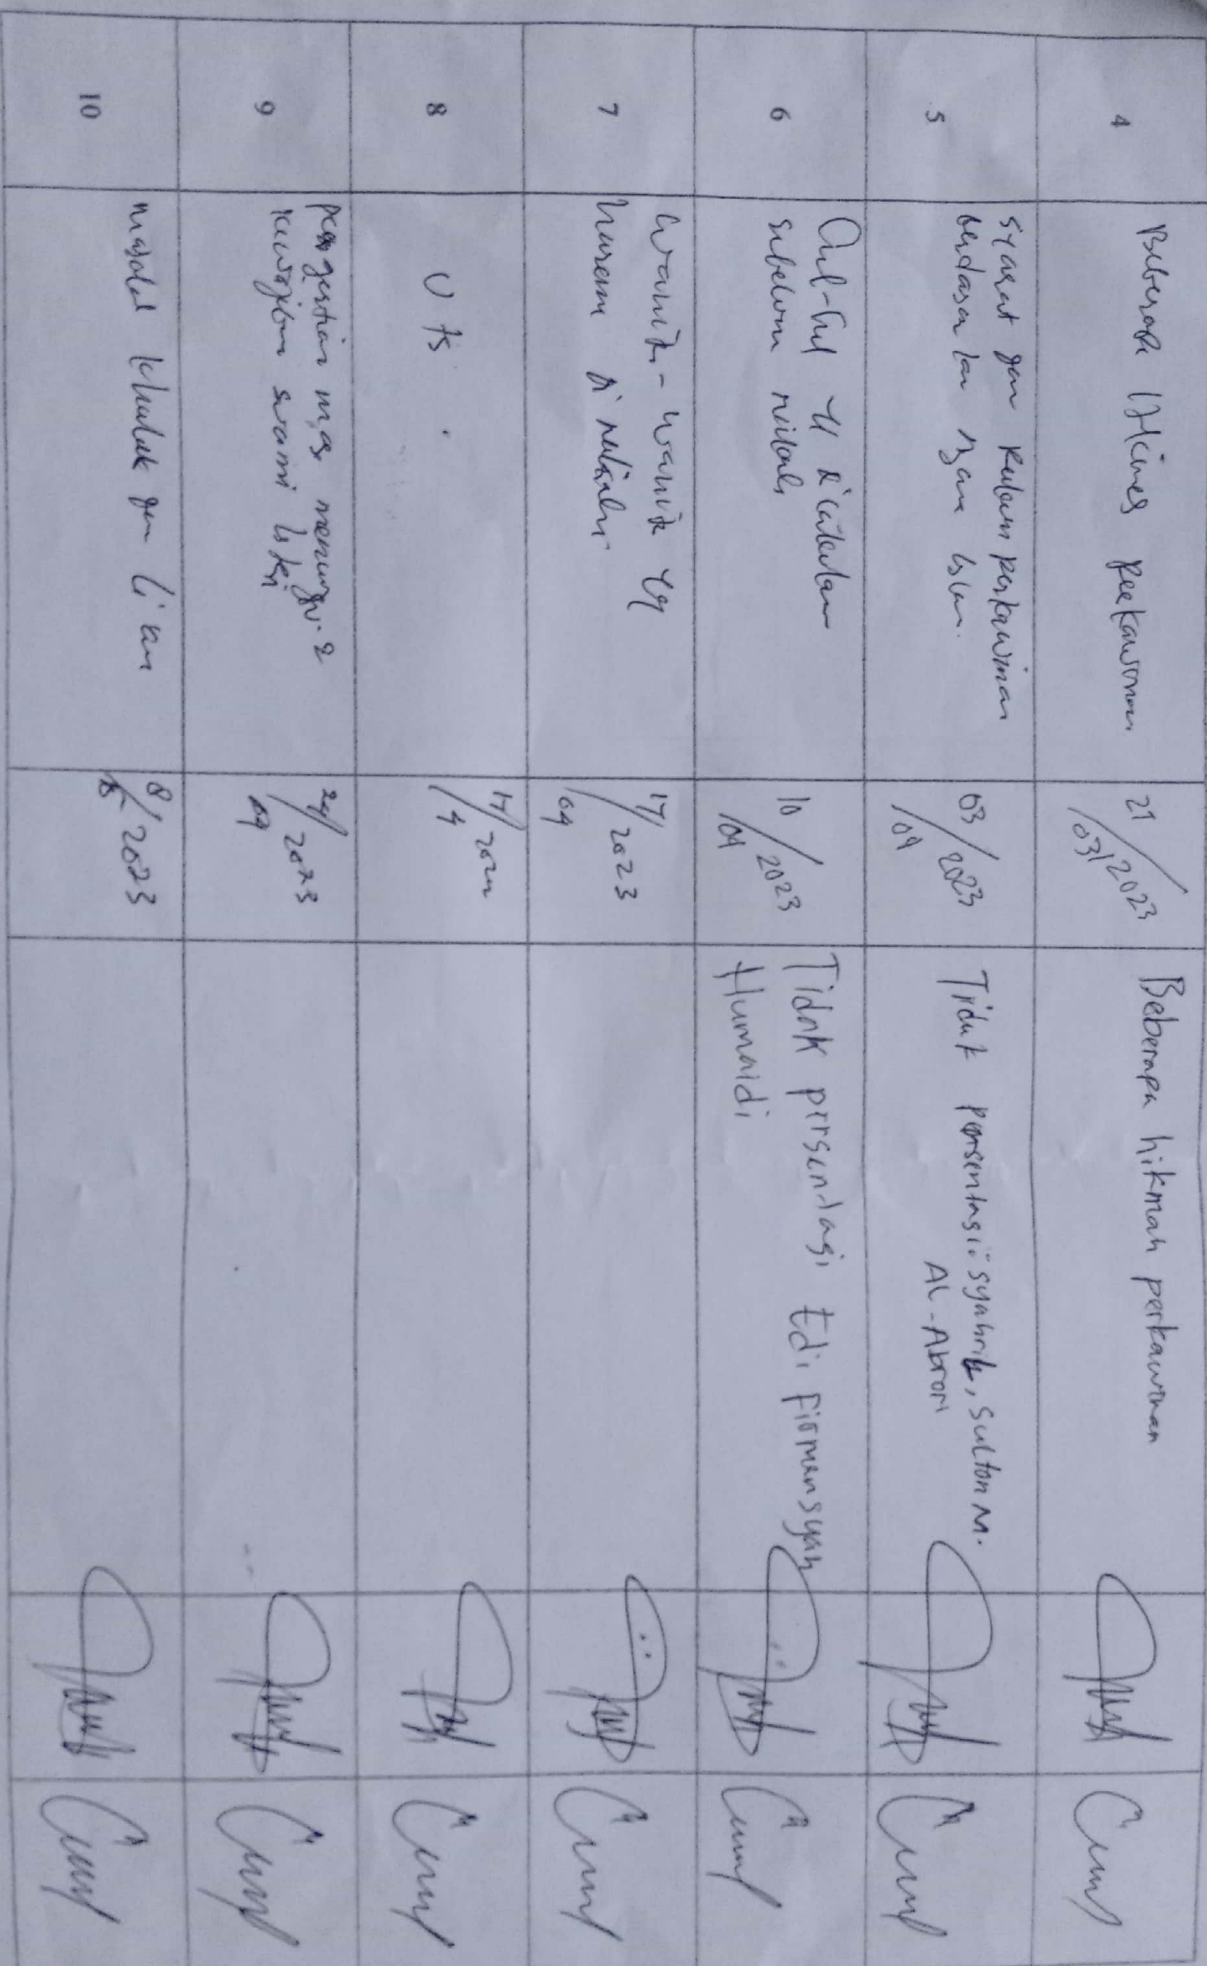 4
Beberapa Hikmah perkawinan
21/03/2023
Beberapa hikmah perkawinan
5
Syarat dan Rukun perkawinan
berdasarkan Islam.
03/04 2023
Tidak persentasi: syahril, Sulton M.
Al-Abrori
6
Hal-hal yg dilakukan
sebelum nikah
10/04 2023
Tidak persentasi Edi Firmansyah
Humaidi
7
Wanita-wanita yg
haram dinikahi
17/04 2023
8
UTS.
17/4
9
kewajiban suami istri
24/04 2023
10
masalah khuluk dan li'an
8/ 2023